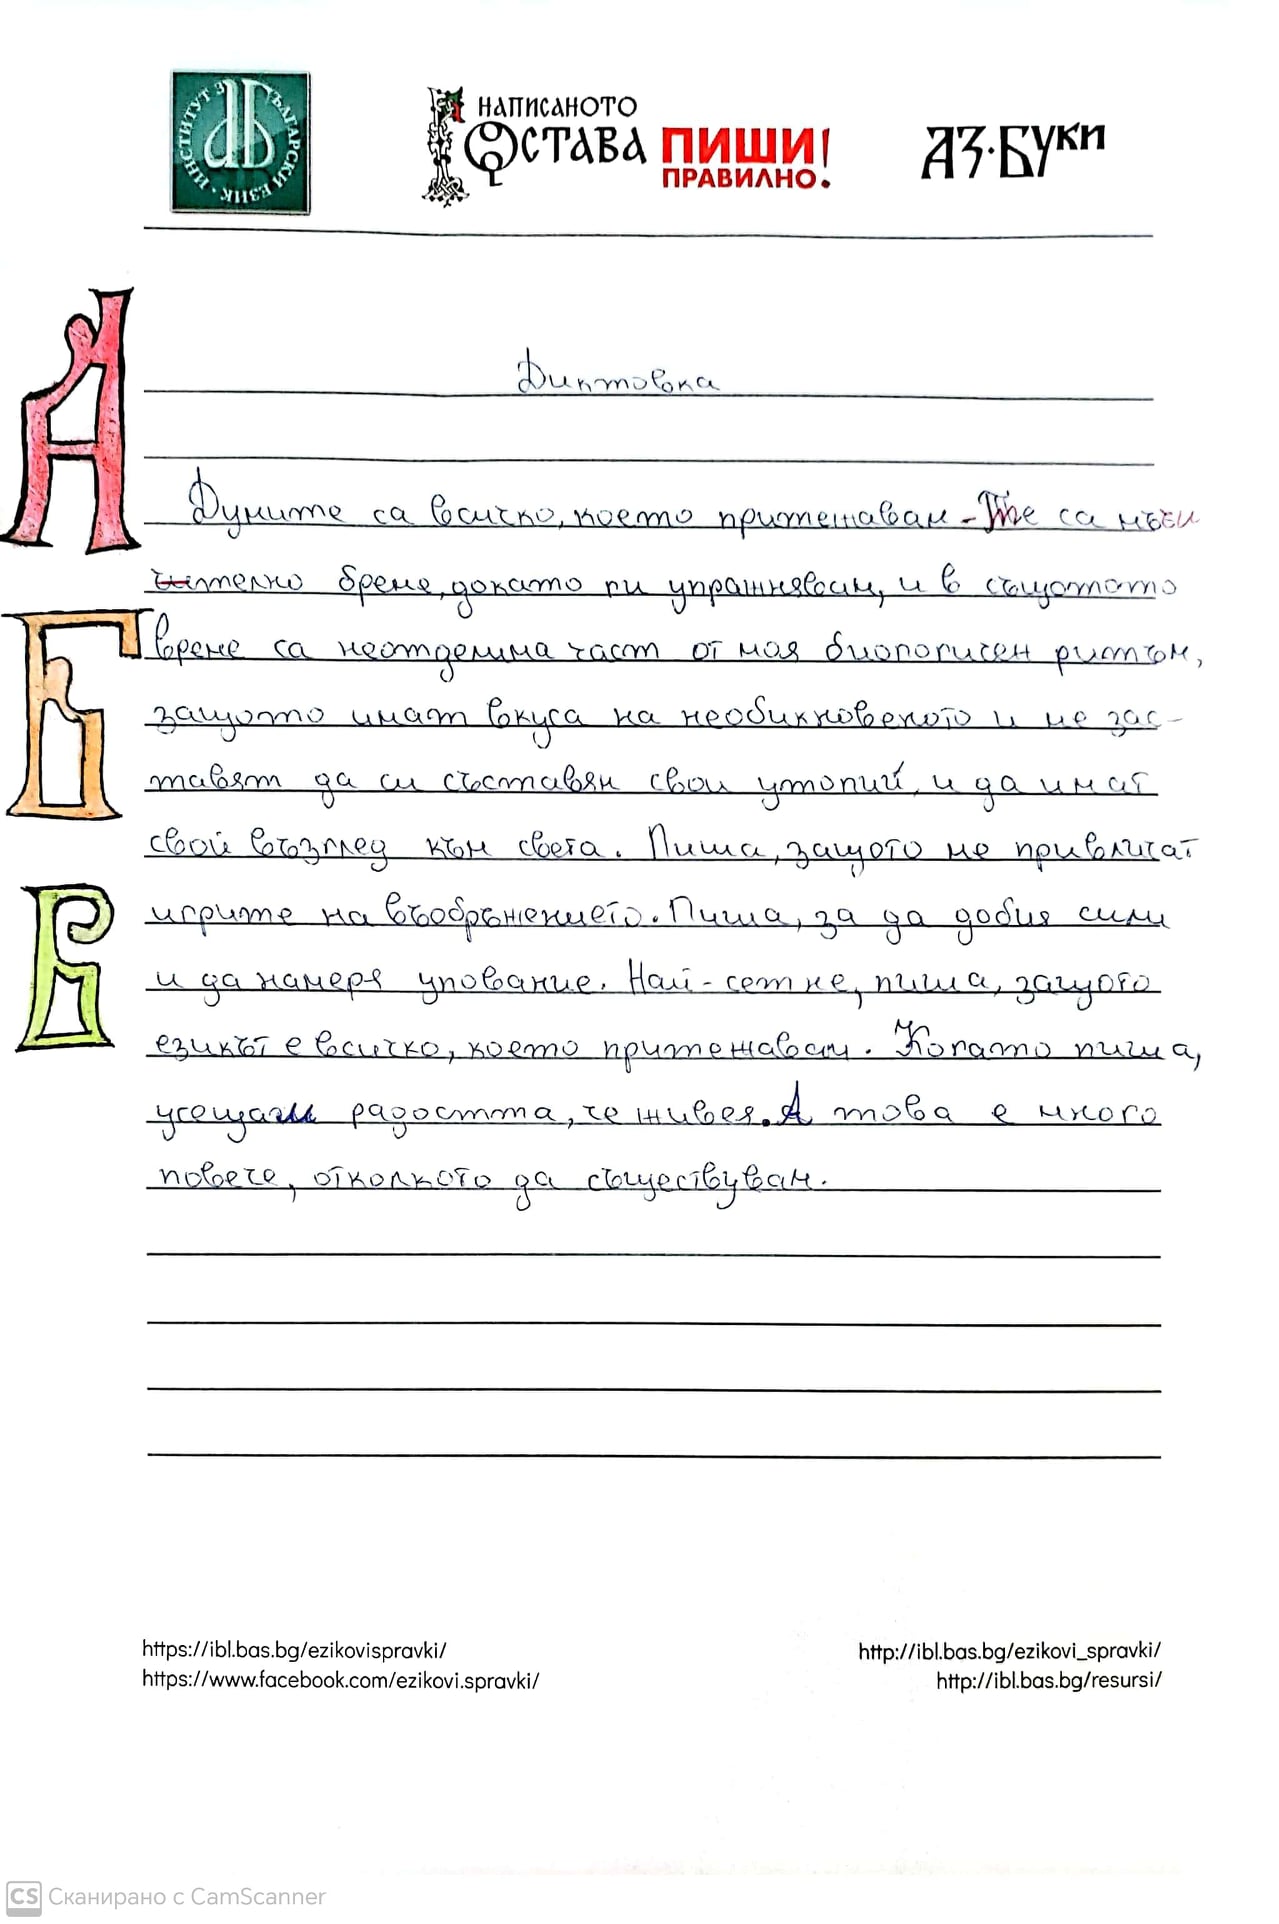 ИНСТИТУТ ЗА БЪЛГАРСКИ ЕЗИК
НАПИСАНОТО
ОСТАВА ПИШИ!
ПРАВИЛНО!
АЗ·БУКИ
А
Б
В
Диктовка
Думите са всичко, което притежавам - Те са мъчи
чително бреме, докато ги упражнявам, и в същотото
време са неотделима част от моя биологичен ритъм,
защото имат вкуса на необикновеното и ме зас-
тавят да си съставям свои утопий, и да имат
свой възглед към света. Пиша, защото ме привличат
игрите на въображението. Пиша, за да добия сили
и да намеря упование. Най-сетне, пиша, защото
езикът е всичко, което притежавам. Когато пиша,
усещам радостта, че живея. А това е много
повече, отколкото да съществувам.
https://ibl.bas.bg/ezikovispravki/
https://www.facebook.com/ezikovi.spravki/
http://ibl.bas.bg/ezikovi_spravki/
http://ibl.bas.bg/resursi/
CS Сканирано с CamScanner